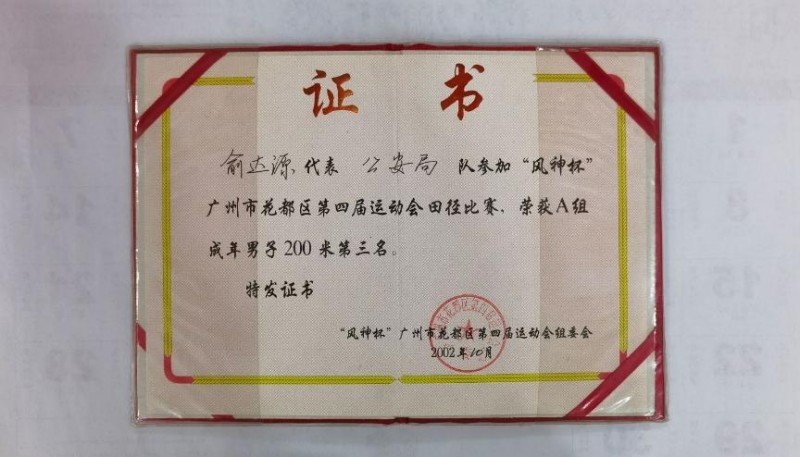 证书
俞达源代表 公安局 队参加“风神杯”
广州市花都区第四届运动会田径比赛，荣获A组
成年男子200米第三名。
特发证书
“风神杯”广州市花都区第四届运动会组委会
2002年10月
7
14
1
8
15
22
29
30